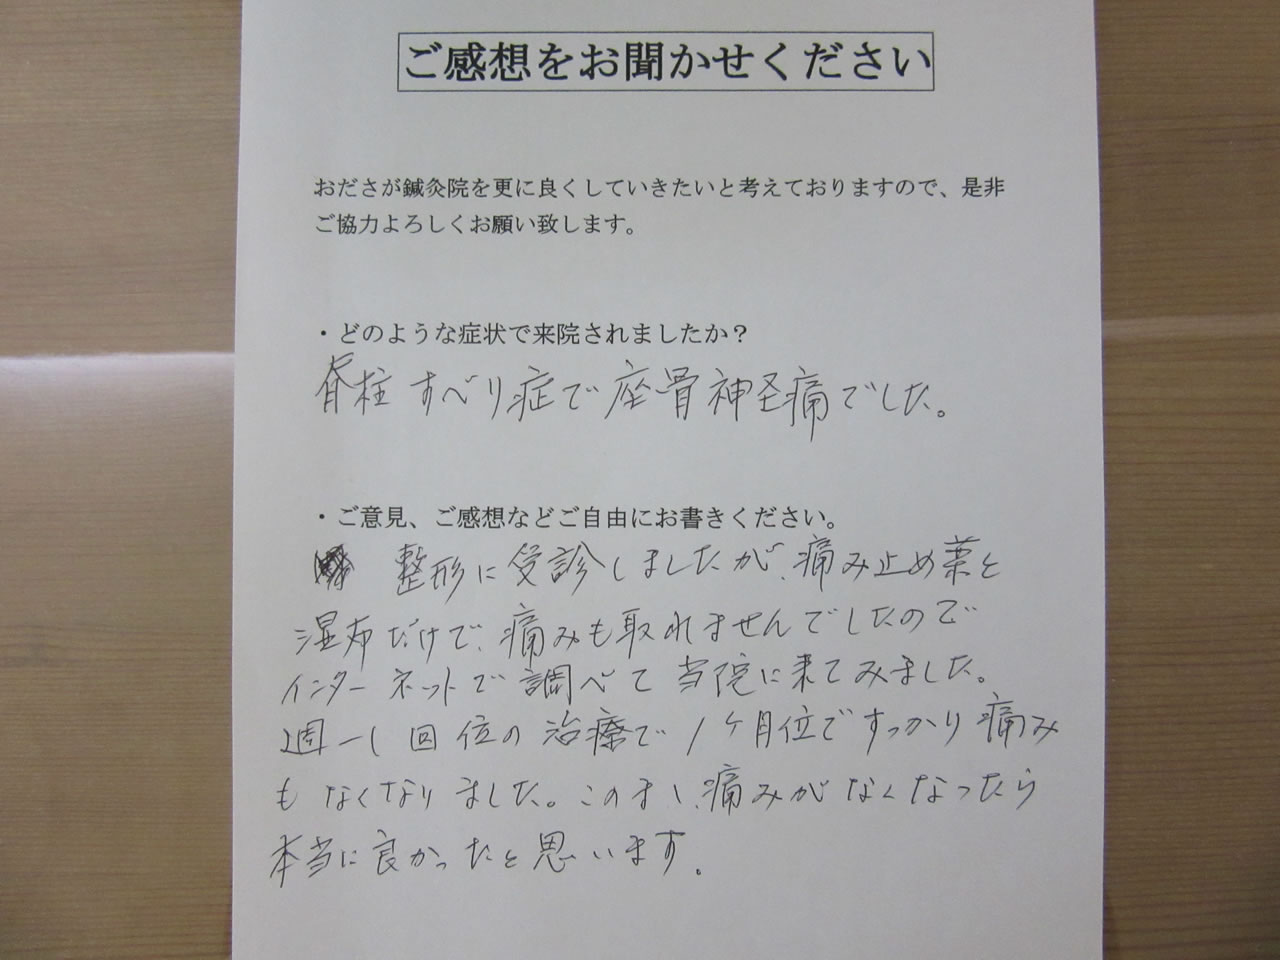 ご感想をお聞かせください
おださが鍼灸院を更に良くしていきたいと考えておりますので、是非
ご協力よろしくお願い致します。
・どのような症状で来院されましたか？
脊柱すべり症で座骨神経痛でした。
・ご意見、ご感想などご自由にお書きください。
整形に受診しましたが、痛み止め薬と
湿布だけで、痛みも取れませんでしたので
インターネットで調べて当院に来てみました。
週一回位の治療で1ヶ月位ですっかり痛み
もなくなりました。このまゝ、痛みがなくなったら
本当に良かったと思います。